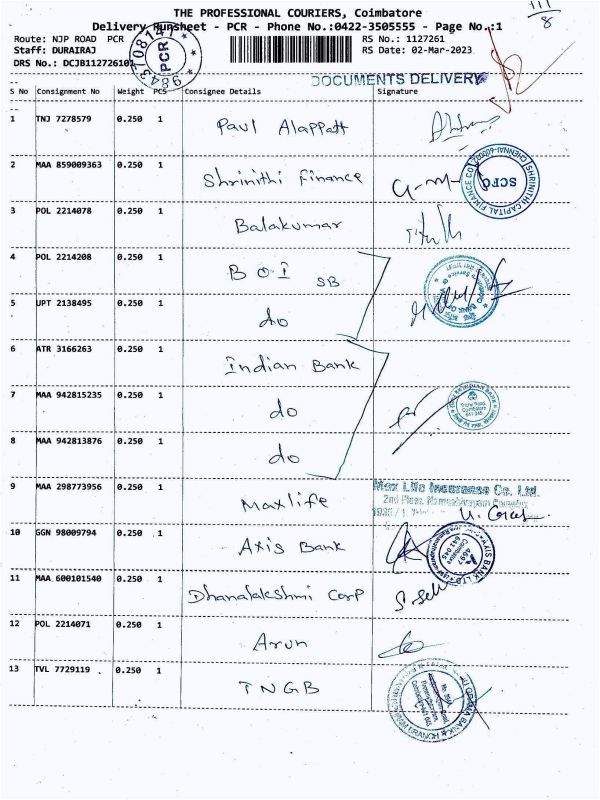 THE PROFESSIONAL COURIERS, Coimbatore
111/8
Delivery Runsheet - PCR - Phone No.:0422-3505555 - Page No.:1
Route: NJP ROAD PCR RS No.: 1127261
Staff: DURAIRAJ RS Date: 02-Mar-2023
DRS No.: DCJB112726101
PCR
DOCUMENTS DELIVERY
S No Consignment No Weight PCS Consignee Details Signature
1 TNJ 7278579 0.250 1 Paul Alappatt
2 MAA 859009363 0.250 1 Shrinithi Finance
SHRINITHI CAPITAL FINANCE CO
SCFC
3 POL 2214078 0.250 1 Balakumar
4 POL 2214208 0.250 1 B O I SB
5 UPT 2138495 0.250 1 do
6 ATR 3166263 0.250 1 Indian Bank
7 MAA 942815235 0.250 1 do
8 MAA 942813876 0.250 1 do
9 MAA 298773956 0.250 1 Maxlife
Max Life Insurance Co. Ltd.
10 GGN 98009794 0.250 1 Axis Bank
AXIS BANK LTD
11 MAA 600101540 0.250 1 Dhanalakshmi Corp
12 POL 2214071 0.250 1 Arun
13 TVL 7729119 . 0.250 1 TNGB